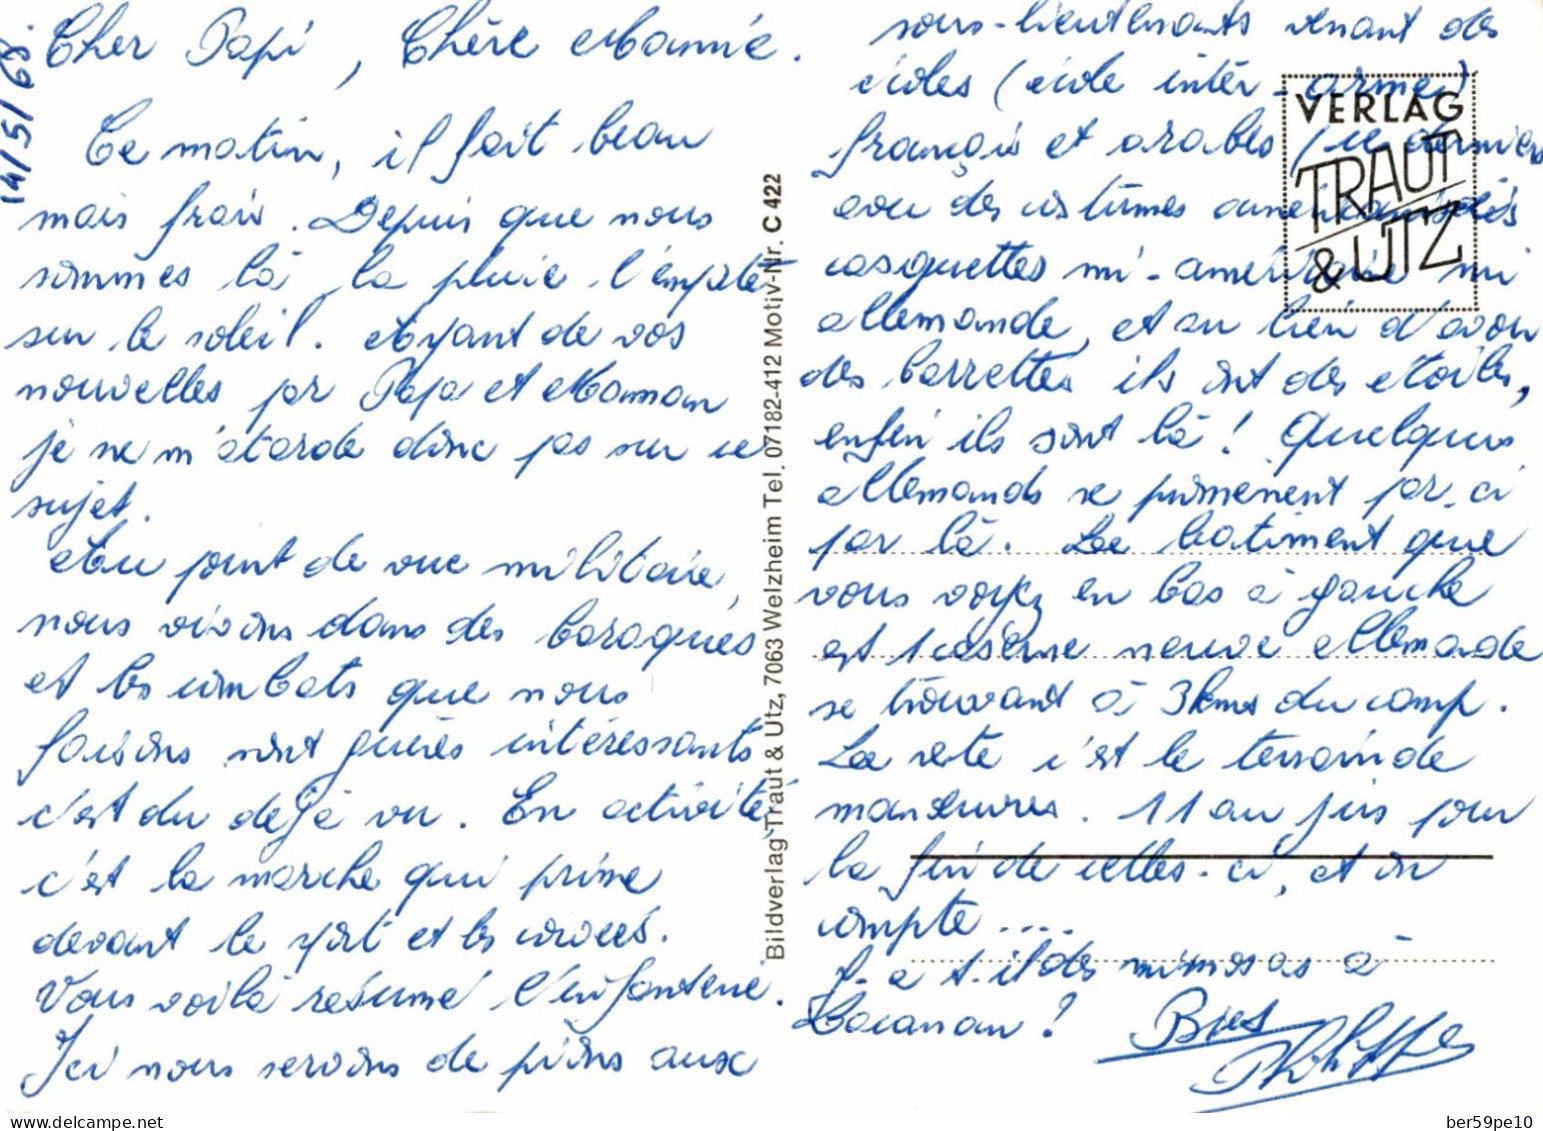 14/5/68.
Cher Papi, Chère Mamie.
Ce matin, il fait beau
mais frais. Depuis que nous
sommes là la pluie l'emporte
sur le soleil. Ayant de vos
nouvelles par Papa et Maman
je ne m'atarde donc pas sur ce
sujet.
Au point de vue militaire,
nous vivons dans des baraques
et les combats que nous
faisons sont guères intéressants
c'est du déjà vu. En activité,
c'est la marche qui prime
devant le sport et les corvées.
Vous voilà résumé l'infanterie.
Ici nous servons de pions aux
sous-lieutenants venant des
écoles (école inter-armes)
français et arabes (ce dernier
avec des costumes américanisés
casquettes mi-américaine mi
allemande, et au lieu d'avoir
des barrettes ils ont des étoiles,
enfin ils sont là! Quelques
allemands se promènent par-ci
par là. Le batiment que
vous voyez en bas à gauche
est 1 caserne neuve allemande
se trouvant à 3 kms du camp.
Le reste c'est le terrain de
manœuvres. 11 au jus pour
la fin de celles-ci, et on
compte ....
Y-a-t-il des mimosas à
Lacanau?
Bises
Philippe
VERLAG
TRAUT
& UTZ
Bildverlag Traut & Utz, 7063 Welzheim Tel. 07182-412 Motiv-Nr. C 422
delcampe.net
ber59pe10